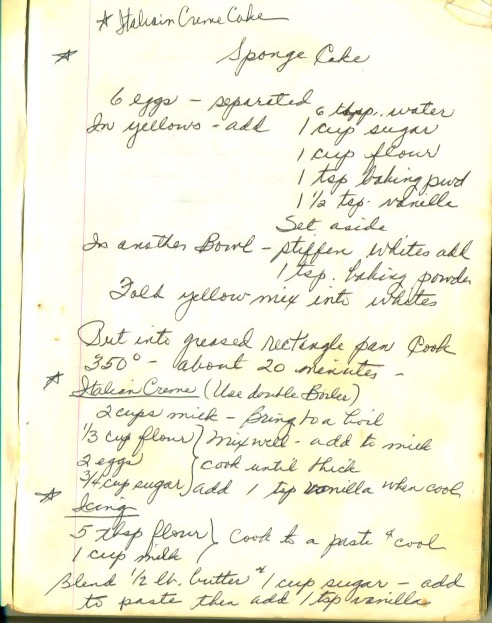 * Italian Creme Cake
* Sponge Cake
6 eggs - separated
In yellows - add 6 tbsp. water
1 cup sugar
1 cup flour
1 tsp baking pwd
1 1/2 tsp. vanilla
Set aside
In another Bowl - stiffen whites add
1 tsp. baking powder
Fold yellow mix into whites
Put into greased rectangle pan Cook
350° - about 20 minutes -
* Italian Creme (Use double Boiler)
2 cups milk - Bring to a boil
1/3 cup flour } Mix well - add to milk
2 eggs } cook until thick
3/4 cup sugar } add 1 tsp vanilla when cool
* Icing
5 tbsp flour } Cook to a paste & cool
1 cup milk }
Blend 1/2 lb. butter & 1 cup sugar - add
to paste then add 1 tsp vanilla